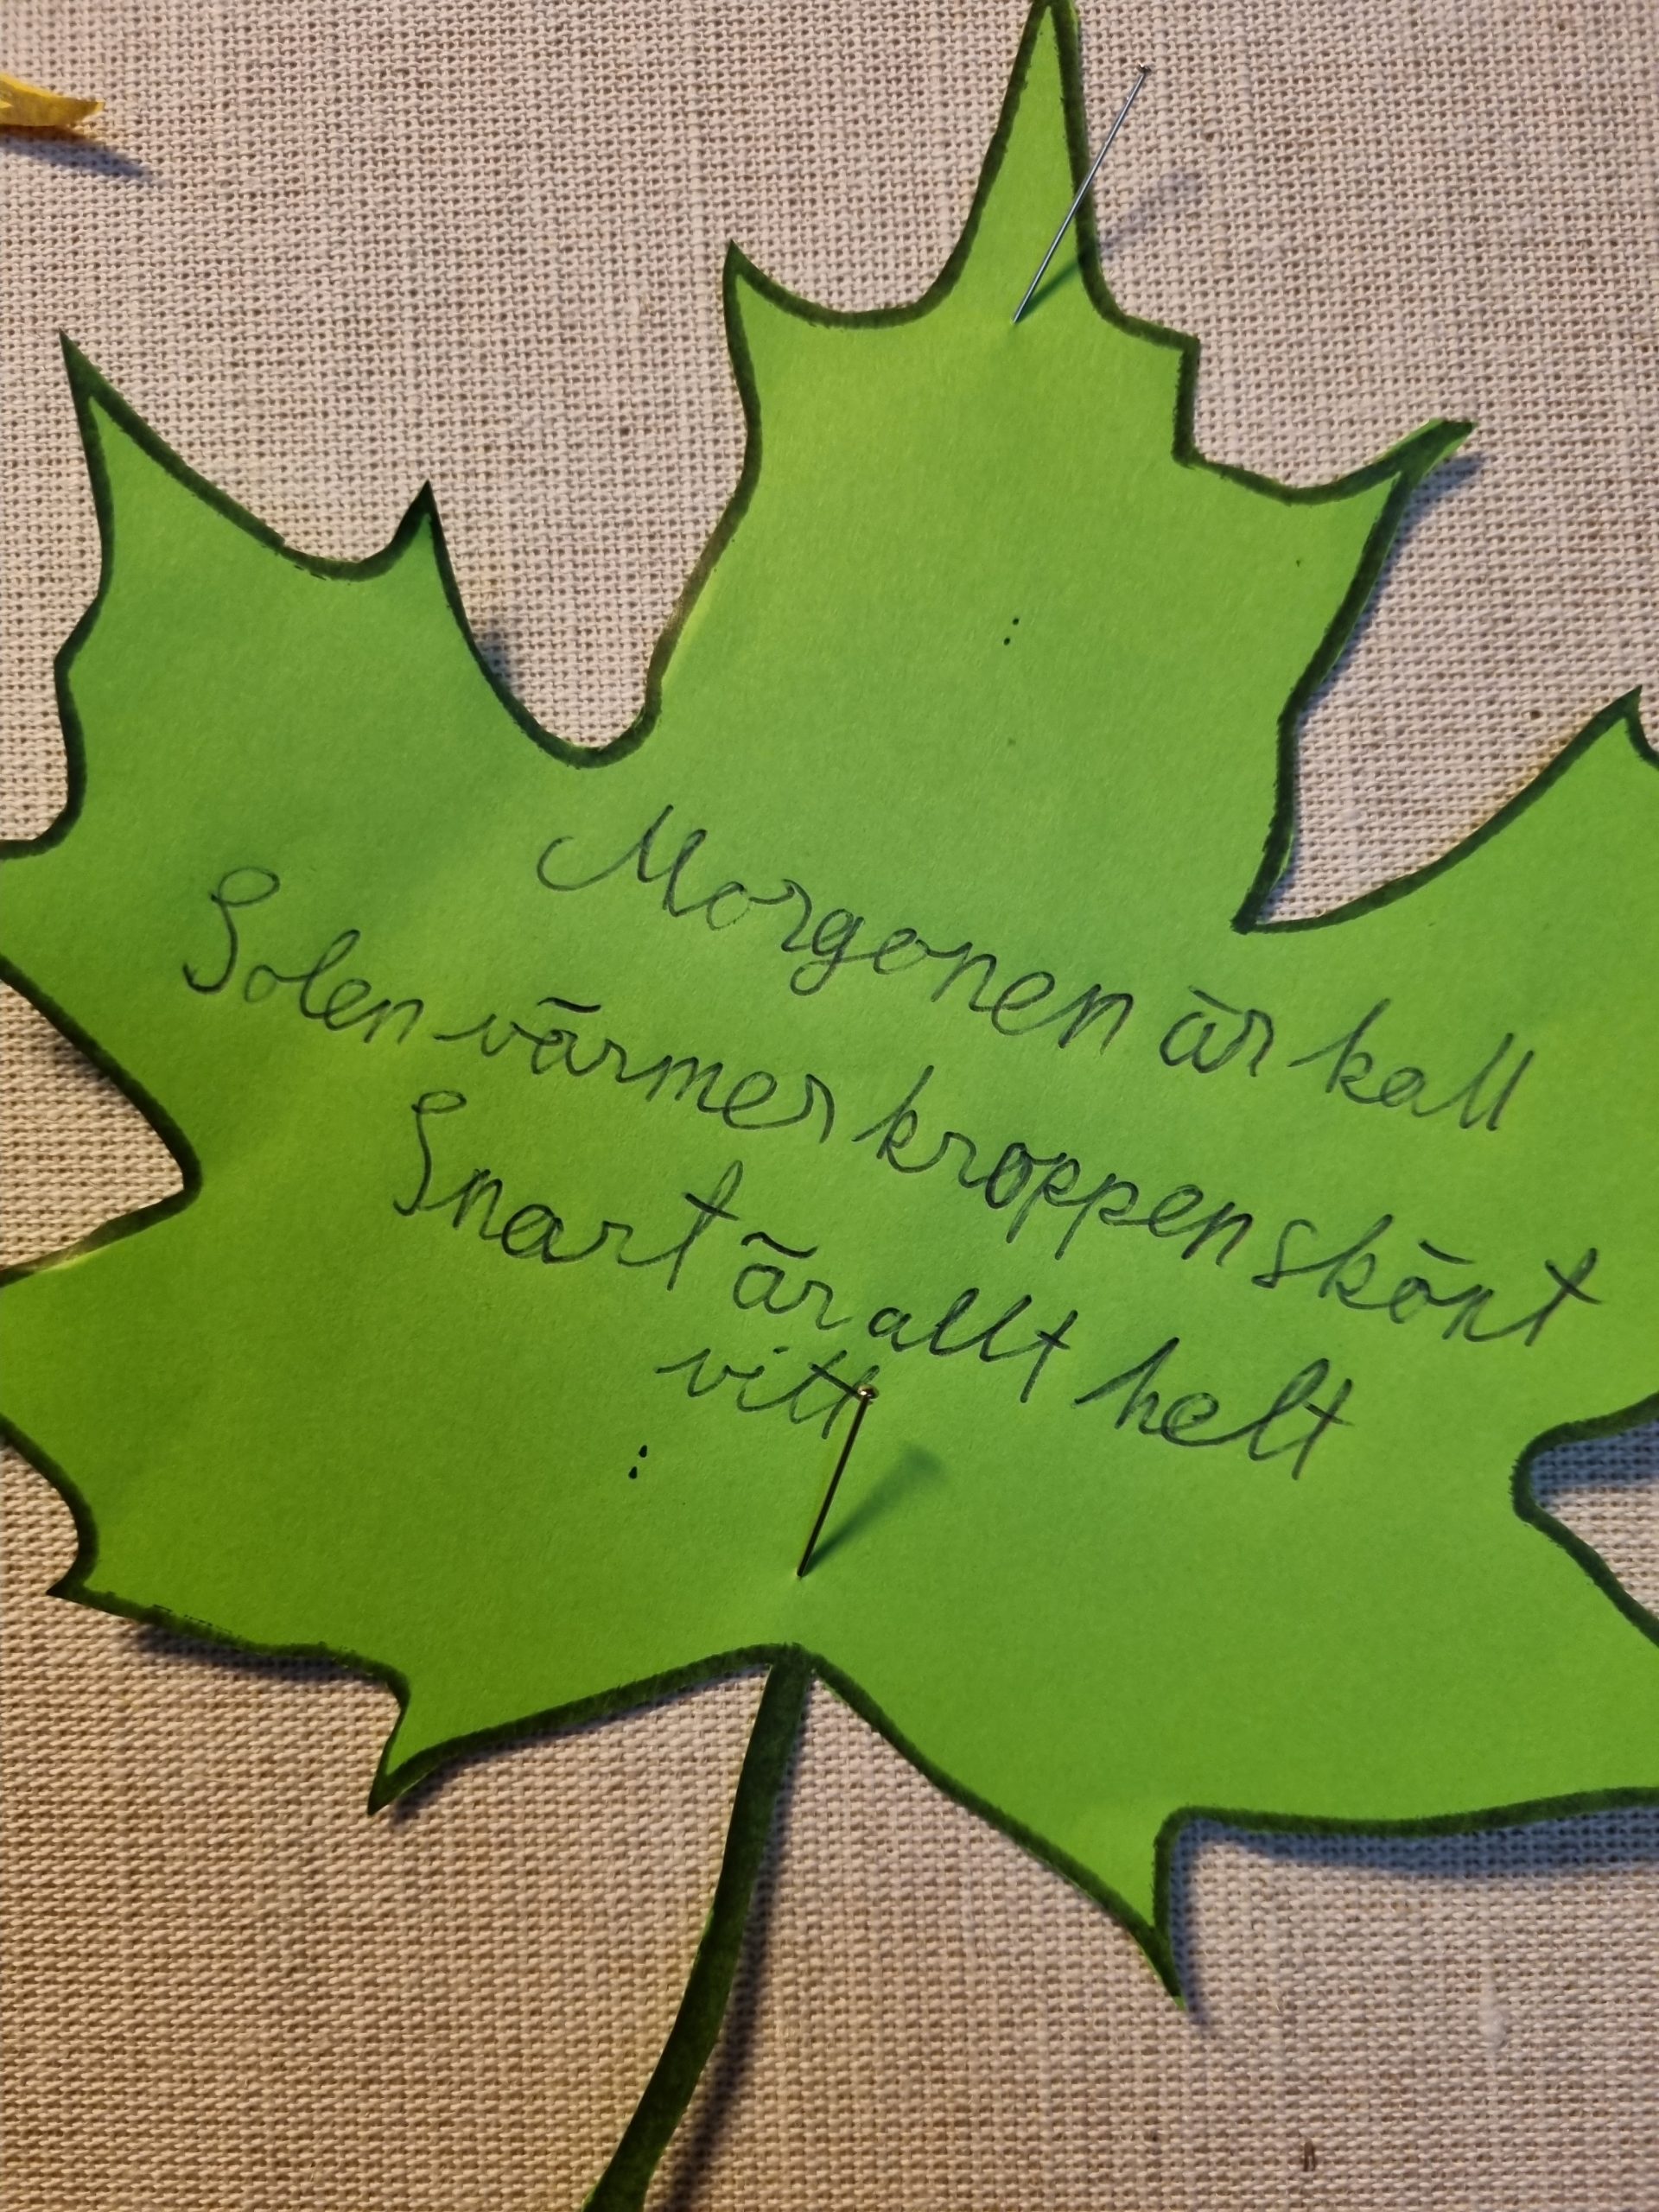 Morgonen är kall
Solen värmer kroppen skönt
Snart är allt helt
vitt